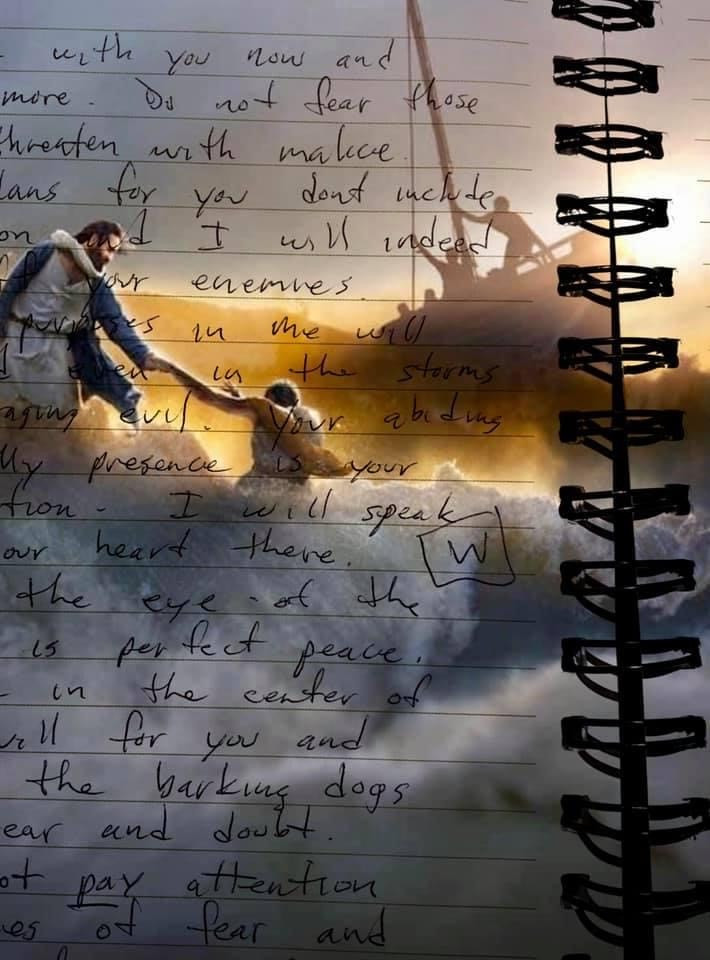 with you now and
more. Do not fear those
threaten with malice.
lans for you dont include
on and I will indeed
your enemies.
purposes in me will
even in the storms
aging evil. Your abiding
My presence is your
tion - I will speak
our heart there. W
the eye of the
is perfect peace.
in the center of
will for you and
the barking dogs
ear and doubt.
ot pay attention
es of fear and